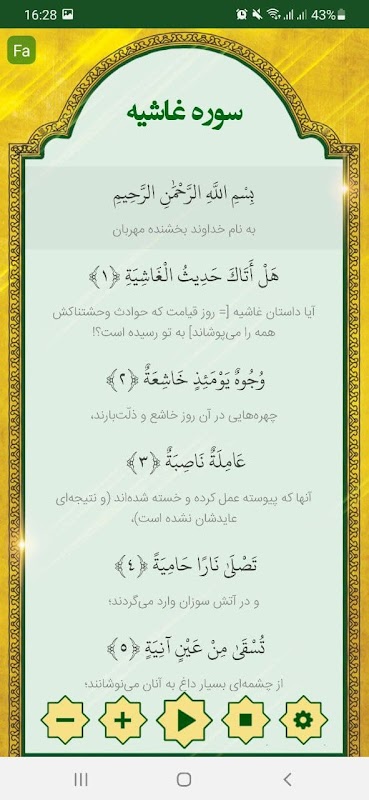 16:28
43%
Fa
سوره غاشیه
بِسْمِ اللَّهِ الرَّحْمَٰنِ الرَّحِيمِ
به نام خداوند بخشنده مهربان
هَلْ أَتَاكَ حَدِيثُ الْغَاشِيَةِ ﴿١﴾
آیا داستان غاشیه [= روز قیامت که حوادث وحشتناکش
همه را می‌پوشاند] به تو رسیده است؟!
وُجُوهٌ يَوْمَئِذٍ خَاشِعَةٌ ﴿٢﴾
چهره‌هایی در آن روز خاشع و ذلّت‌بارند،
عَامِلَةٌ نَاصِبَةٌ ﴿٣﴾
آنها که پیوسته عمل کرده و خسته شده‌اند (و نتیجه‌ای
عایدشان نشده است)،
تَصْلَىٰ نَارًا حَامِيَةً ﴿٤﴾
و در آتش سوزان وارد می‌گردند؛
تُسْقَىٰ مِنْ عَيْنٍ آنِيَةٍ ﴿٥﴾
از چشمه‌ای بسیار داغ به آنان می‌نوشانند؛